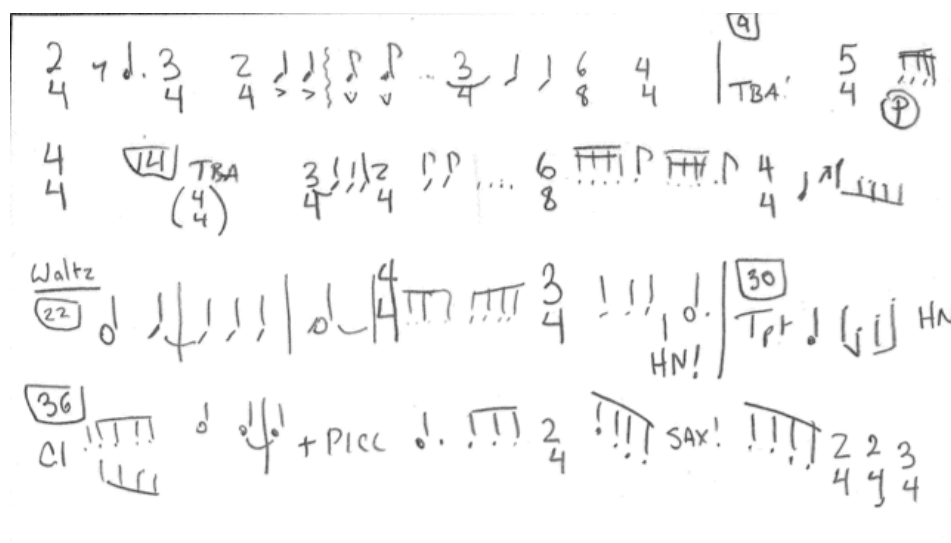 2/4 3/4 2/4 3/4 6/8 4/4 9 TBA! 5/4 P
4/4 14 TBA (4/4) 3/4 2/4 .... 6/8 4/4
Waltz
22 4/4 3/4 HN! 30 Tpt HN
36 Cl + PICC 2/4 SAX! 2/4 2/4 3/4